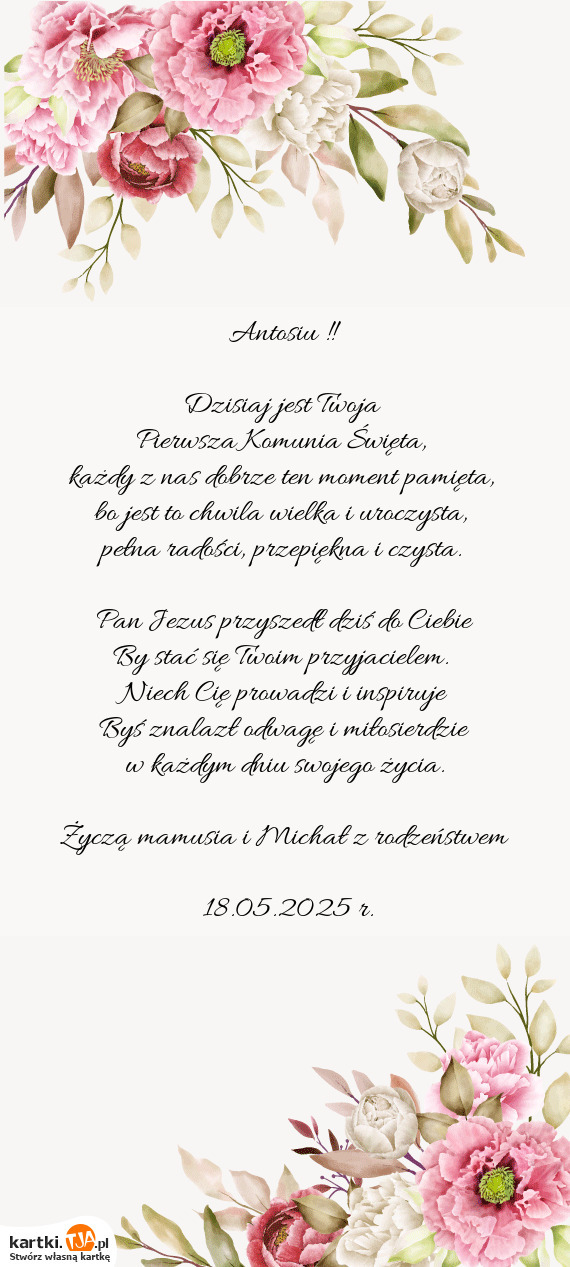 Antosiu !!
Dzisiaj jest Twoja
Pierwsza Komunia Święta,
każdy z nas dobrze ten moment pamięta,
bo jest to chwila wielka i uroczysta,
pełna radości, przepiękna i czysta.
Pan Jezus przyszedł dziś do Ciebie
By stać się Twoim przyjacielem.
Niech Cię prowadzi i inspiruje
Byś znalazł odwagę i miłosierdzie
w każdym dniu swojego życia.
Życzą mamusia i Michał z rodzeństwem
18.05.2025 r.
kartki.TJA.pl
Stwórz własną kartkę